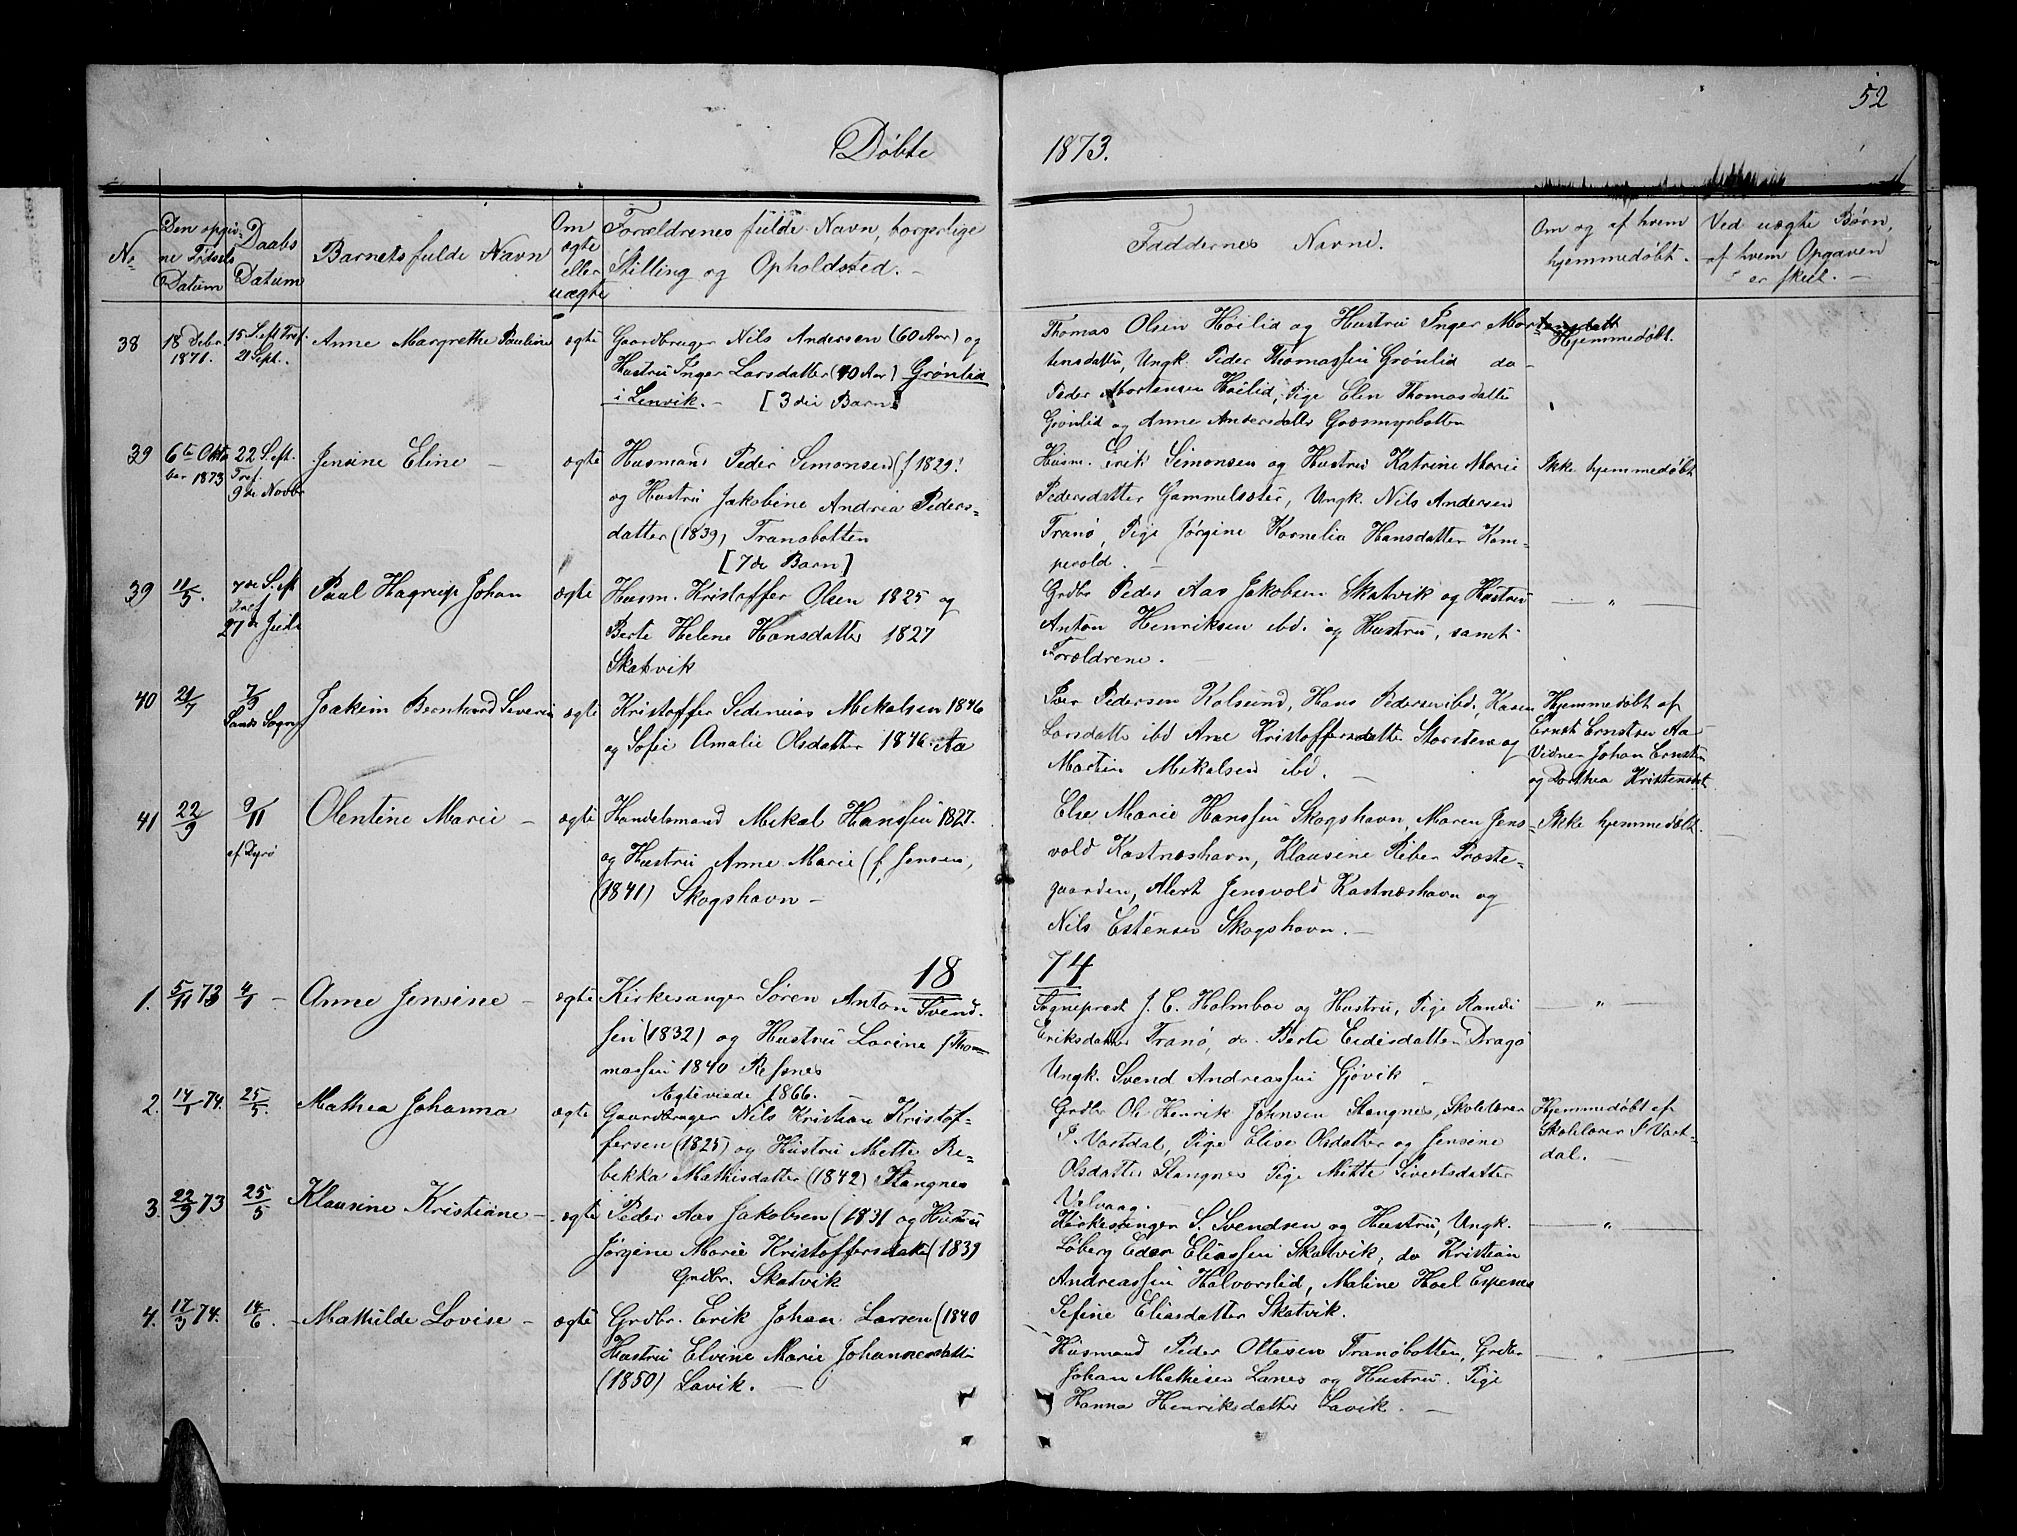 52
Døbte 1873.
No
Den opgivne Fødsels Datum
Daabs Datum
Barnets fulde Navn
Om ægte eller uægte
Forældrenes fulde Navn, borgerlige Stilling og Opholdssted. -
Faddernes Navne.
Om og af hvem hjemmedøbt.
Ved uægte Børn, af hvem Opgaven er skeet. -
38
18 Debr 1871.
15 S. eft Tref. 21 Sept.
Anne Margrethe Pauline
ægte
Gaardbruger Nils Andersen (60 Aar) og
Hustru Inger Larsdatter (40 Aar) Grønlid
i Lenvik. - [3die Barn]
Thomas Olsen Høilid og Hustru Inger Mor-
tensdatter, Ungk. Peder Thomassen Grønlid do
Peder Mortensen Høilid, Pige Elen Thomasdatter
Grønlid og Anne Andersdatter Graasmyrbotten
Hjemmedøbt.
39
6te Oktober 1873
22 S. eft. Tref. 9de Novbr
Jensine Eline -
ægte
Husmand Peder Simonsen (f 1829)
og Hustru Jakobine Andrea Peders-
datter (1839) Tranobotten
[7de Barn]
Husm. Erik Simonsen og Hustru Katrine Marie
Pedersdatter Gammelsæter, Ungk. Nils Andersen
Tranø, Pige Jørgine Kornelia Hansdatter Kam-
perold.
Ikke hjemmedøbt
39
11/5.
7de S. eft Tref 27de Juli
Paul Hagrup Johan
ægte
Husm. Kristoffer Olsen 1825 og
Berte Helene Hansdatter 1827
Skatvik
Grdbr Peder Aas Jakobsen Skatvik og Hustru
Anton Henriksen ibd. og Hustru, samt
Forældrene.
- " -
40
21/7
7/9 Sands Sogn
Joakim Bernhard Severin
ægte
Kristoffer Sedenius Mikalsen 1846
og Sofie Amalie Olsdatter 1846 Aa
Peder Pedersen Kolsund, Hans Pedersen ibd, Karen
Larsdatter ibd Ane Kristoffersdatter Storsten og
Martin Mikalsen ibd. -
Hjemmedøbt af
Ernst Ernstsen Aa
Vidner Johan Ernstsen
og Dorthea Kristensdat
41
22/9
9/11 af Dyrø
Olentine Marie -
ægte
Handelsmand Mikal Hanssen 1827.
og Hustru Anne Marie (f. Jensen,
(1841) Skogshavn -
Else Marie Hanssen Skogshavn, Maren Jens-
vold Kastneshavn, Klausine Riber Præste-
gaarden, Alert Jensvold Kastnæshavn og
Nils Estensen Skogshavn. -
Ikke hjemmedøbt.
1874
1.
5/11 73
4/1 -
Anne Jensine -
ægte
Kirkesanger Søren Anton Svend-
sen (1832) og Hustru Lorine f Tho-
massen 1840 Refsnes
Ægteviede 1866.
Sogneprest J. C. Holmboe og Hustru, Pige Randi
Eriksdatter Tranø, do. Berte Eidisdatter Dragø
Ungk. Svend Andreassen Gjøvik -
- " -
2.
14/1 74.
25/5.
Mathea Johanna
ægte
Gaardbruger Nils Kristian Kristof-
fersen (1825) og Hustru Mette Re-
bekka Mathisdatter (1842) Stangnes
Grdbr Ole Henrik Johnsen Stangnes, Skolelærer
P. Vastdal, Pige Elise Olsdatter og Jensine
Olsdatter Stangnes Pige Mitte Sivertsdatter
Valvaag. -
Hjemmedøbt af
Skolelærer P Vast-
dal. -
3.
22/9 73
25/5
Klausine Kristiane -
ægte
Peder Aas Jakobsen (1831 og Hustru
Jørgine Marie Kristoffersdatter (1839
Grdbr. Skatvik
Kirkesanger S. Svendsen og Hustru, Ungk.
Loberg Eder Eliassen Skatvik, do Kristian
Andreassen Halvorslid, Maline Hoel Espenes
Sefine Eliasdatter Skatvik.
- " -
4.
17/3 74.
14/6.
- Mathilde Lovise -
ægte
Grdbr. Erik Johan Larsen (1840
Hustru Elvine Marie Johannesdatter
(1850) Lavik. -
Husmand Peder Ottesen Tranøbotten, Grdbr
Johan Mathisen Lanes og Hustru. Pige
Hanna Henriksdatter Lavik. -
- " -